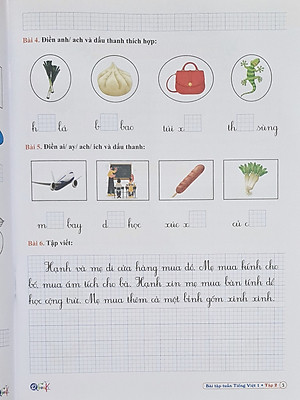 Bài 4. Điền anh/ ach và dấu thanh thích hợp:
h lá b bao túi x th sùng
Bài 5. Điền ai/ ay/ ach/ ich và dấu thanh:
m bay d học xúc x củ c
Bài 6. Tập viết:
Hạnh và mẹ đi cửa hàng mua đồ. Mẹ mua bánh cho
bố, mua ấm tích cho bà. Hạnh xin mẹ mua bàn tính để
học cộng trừ. Mẹ mua thêm cả một bình gốm xinh xinh.
Bài tập tuần Tiếng Việt 1 - Tập 2 5